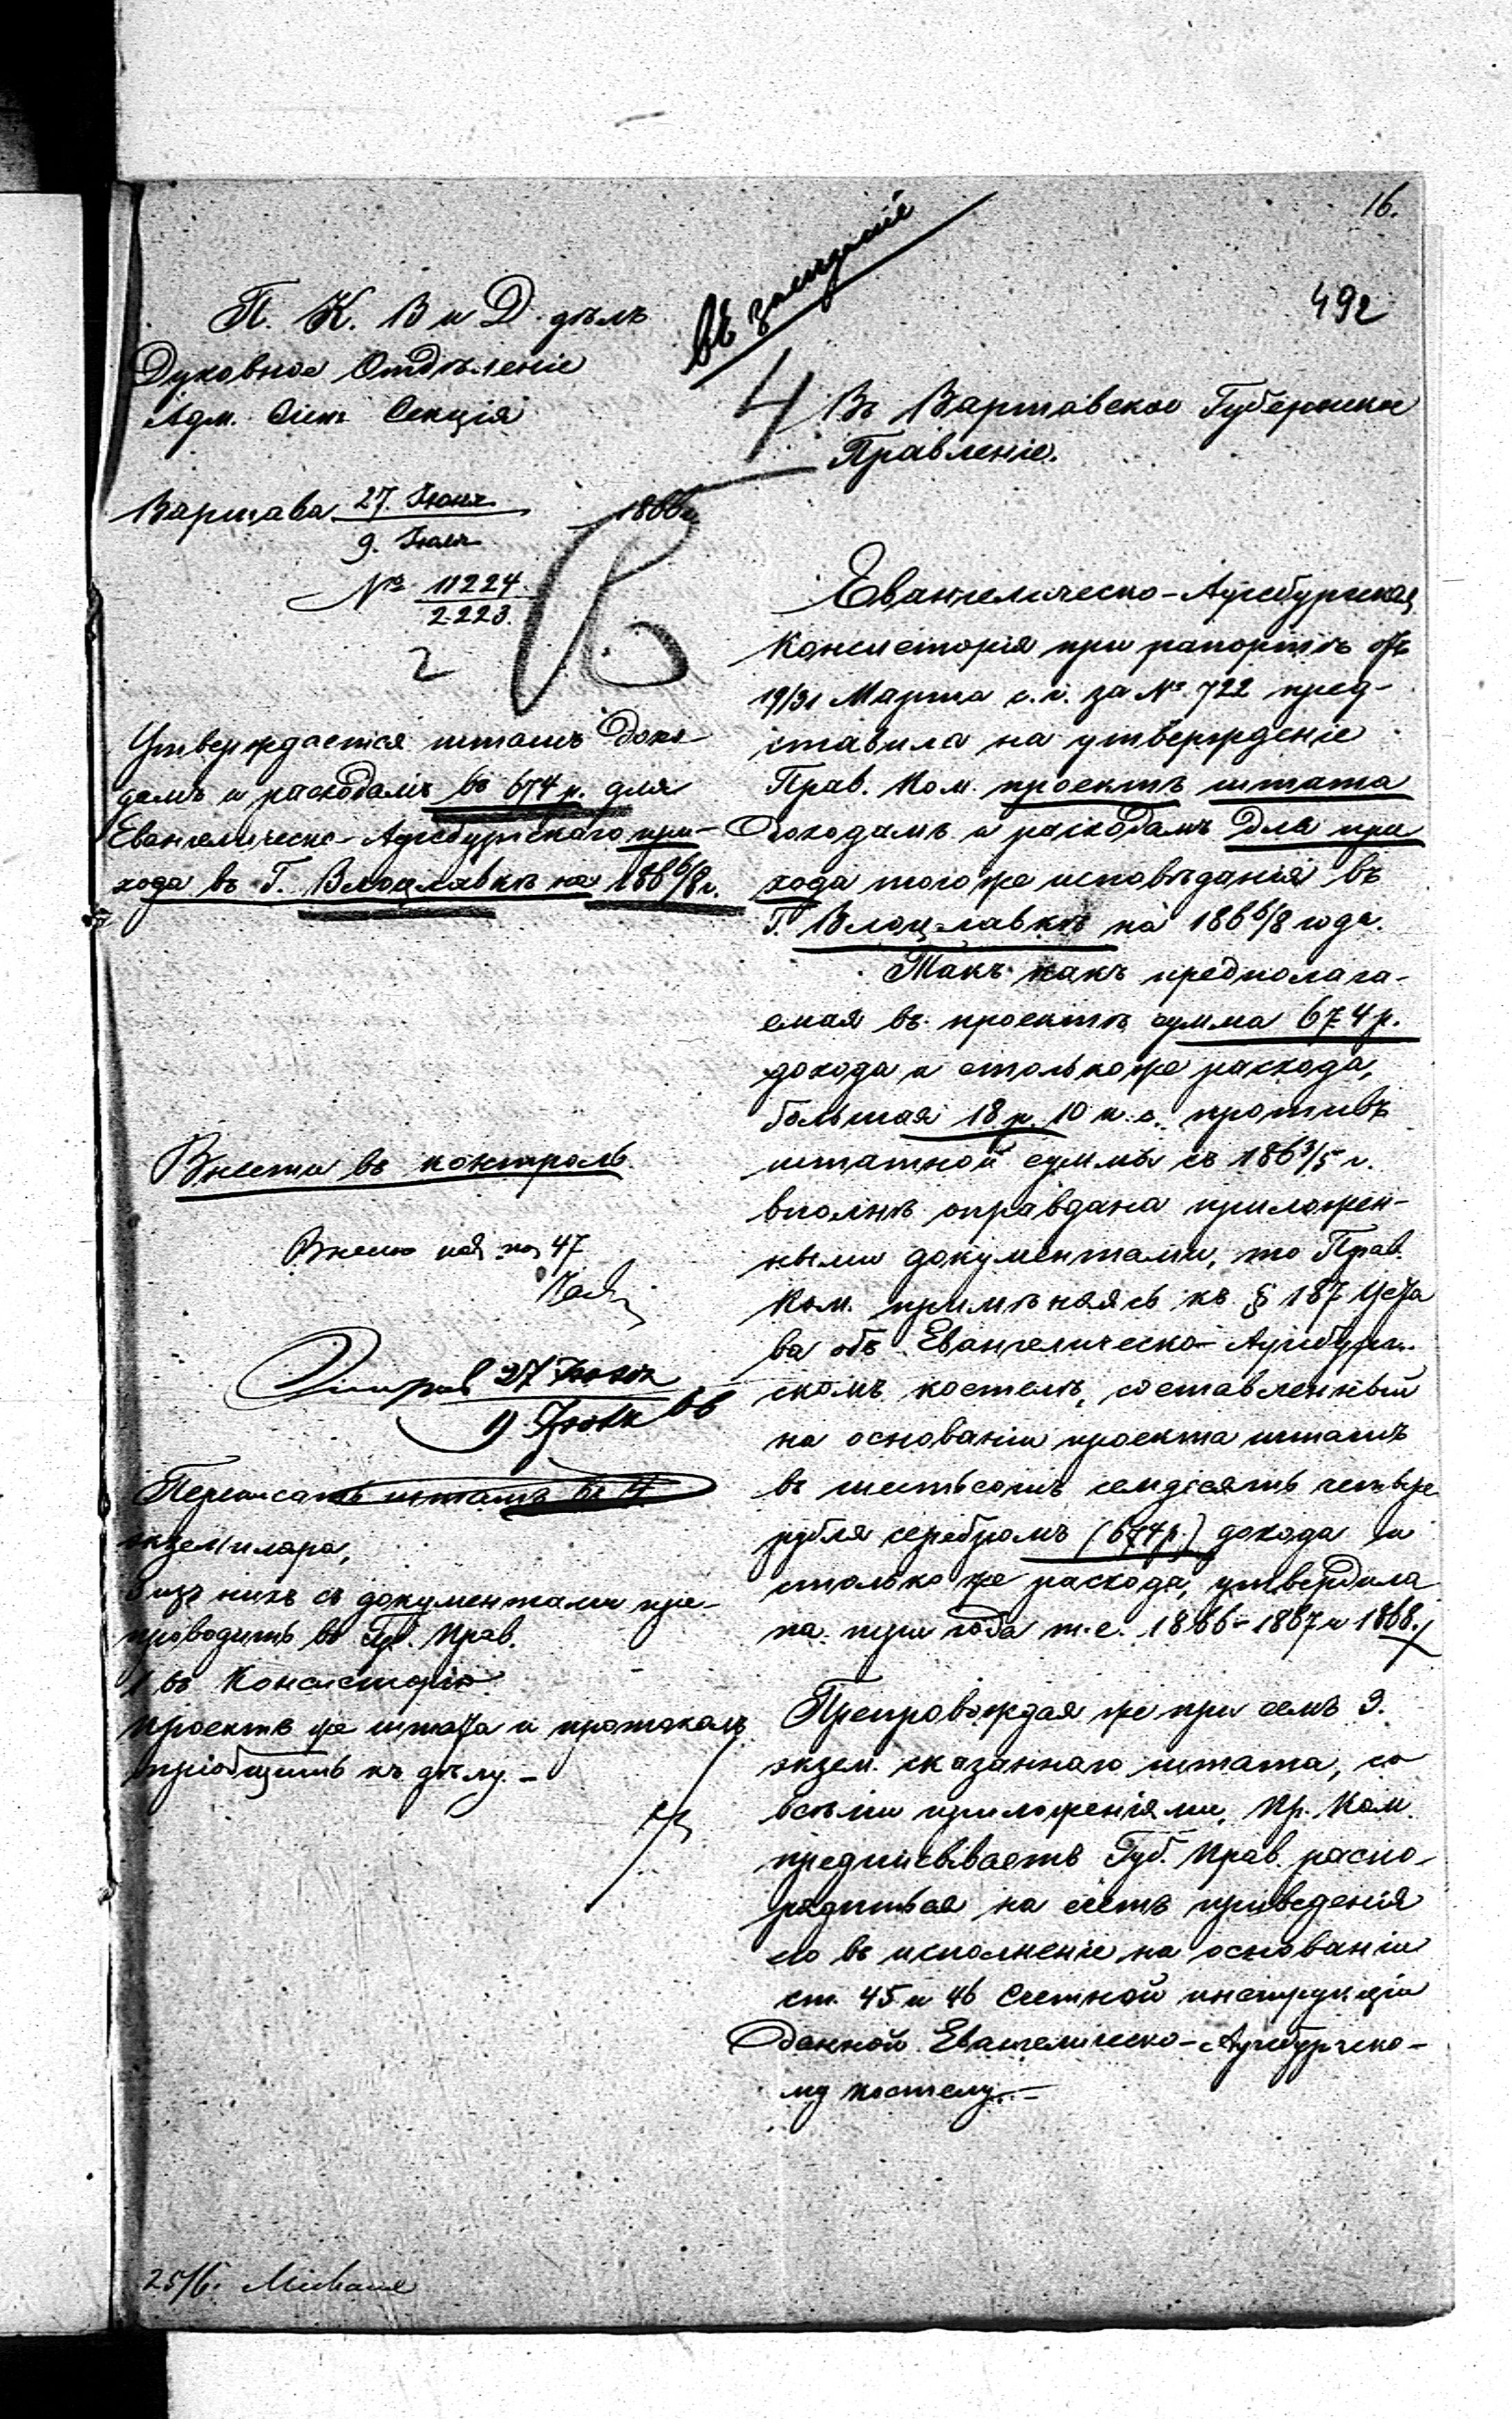 16.
492
въ заседаніе
П. К. В и Д. дѣлъ
Духовное Отдѣленіе
Адм. Секція
Варшава 27. Іюня 1866 г.
9. Іюля
№ 11224.
2223.
2
4
Въ Варшавское Губернское
Правленіе.
Утверждается штатъ дохо
дамъ и расходамъ въ 674 р. для
Евангелическо-Аугсбургскаго при-
хода въ Г. Влоцлавкѣ на 186 6/8 г.
Внести въ контроль.
Внесено под поз 47
27 Іюня
9 Іюля 66
Переписать штатъ въ 4
экземпляра,
3 изъ нихъ съ документами пре-
проводить въ Губ. Прав.
1 въ Консисторію
проектъ же штата и протоколъ
пріобщить къ дѣлу. –
Евангелическо-Аугсбургская
Консисторія при рапортѣ отъ
19/31 Марта с. г. за № 722 пред-
ставила на утвержденіе
Прав. Ком. проектъ штата
доходамъ и расходамъ для при
хода того же исповѣданія въ
Г. Влоцлавкѣ на 186 6/8 года.
Такъ какъ предполага-
емая въ проектѣ сумма 674 р.
дохода и столько же расхода,
большая 18 р. 10 к. с. противъ
штатной суммы съ 186 3/5 г.
вполнѣ оправдана приложен-
ными документами, то Прав.
Ком. примѣняясь къ § 187 Уста
ва объ Евангелическо-Аугсбург-
скомъ костелѣ, составленный
на основаніи проекта штатъ
въ шестьсотъ семдесятъ четыре
рубля серебромъ (674 р.) дохода и
столько же расхода, утвердила
на три года т. е. 1866-1867 и 1868.
Препровождая же при семъ 3.
экзем. сказаннаго штата, со
всѣми приложеніями, Пр. Ком.
предписываетъ Губ. Прав. распо-
рядиться на счетъ приведенія
его въ исполненіе на основаніи
ст. 45 и 46 Счетной инструкціи
данной Евангелическо-Аугсбургско-
му костелу. –
25/6.